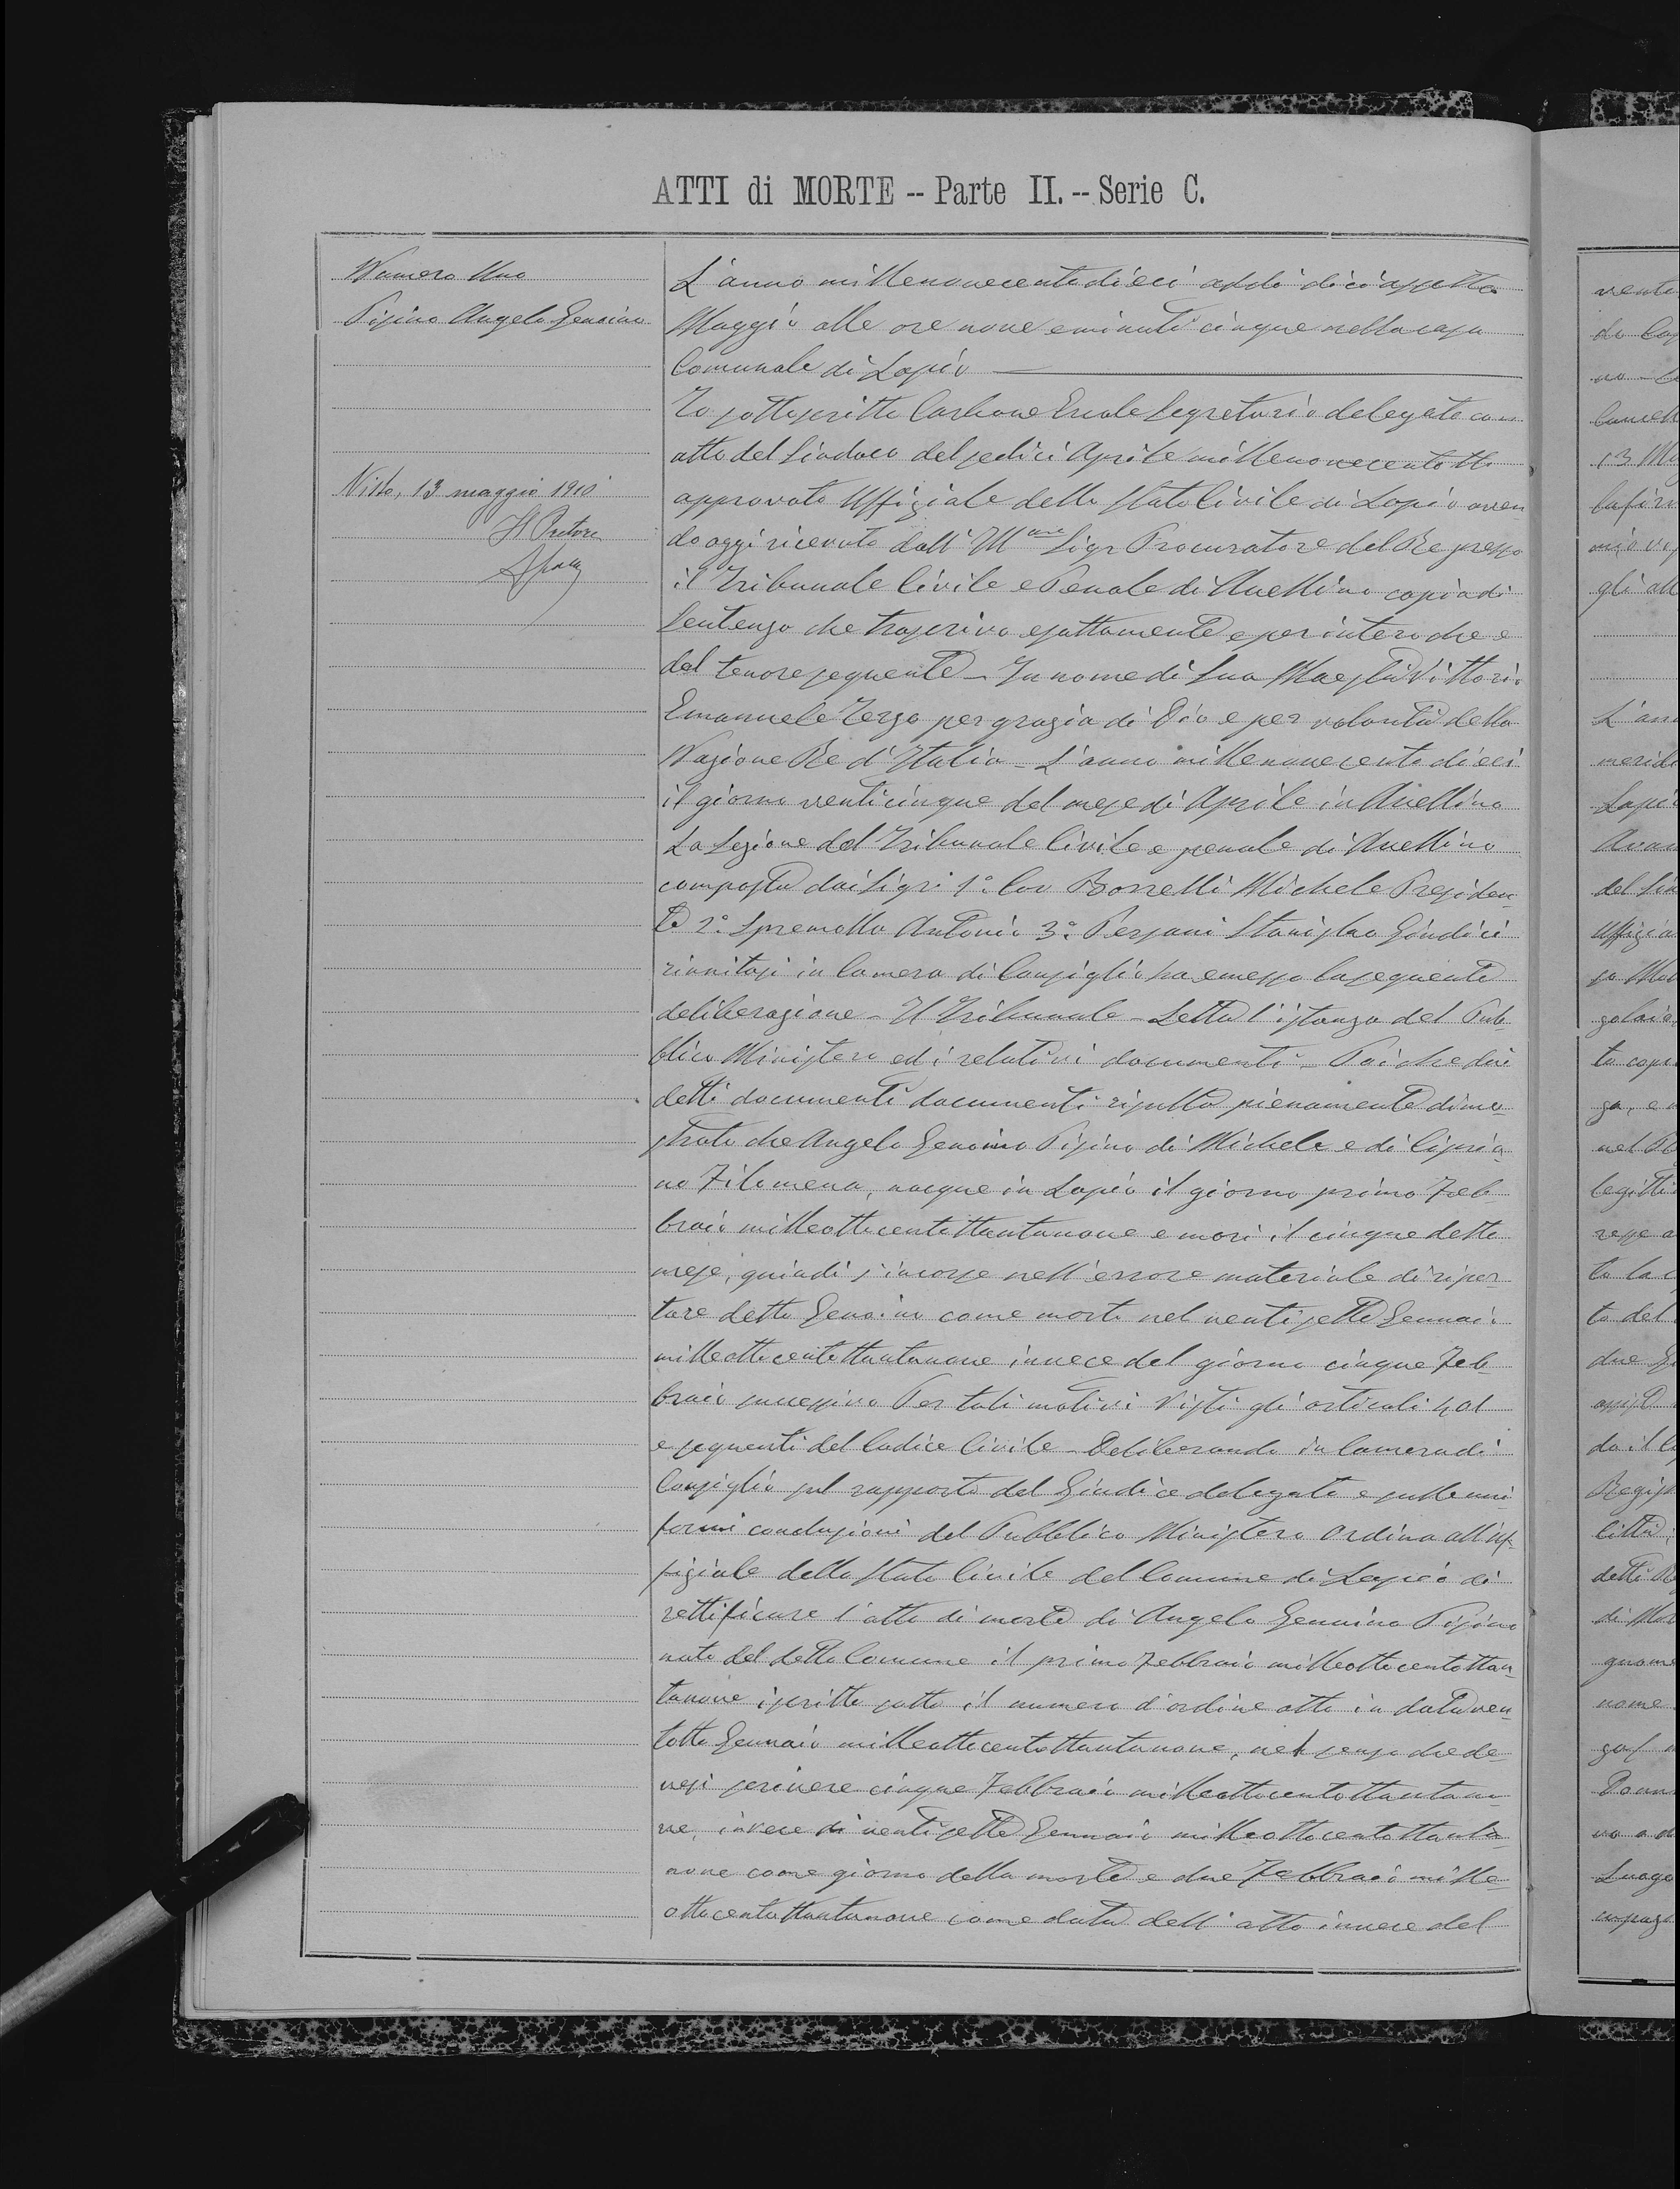 ATTI di MORTE -- Parte II. -- Serie C.
Numero Uno
Pisino Angelo Genoino
Visto, 13 maggio 1910
Il Pretore
L'anno millenovecentodieci addi diciassette
Maggio alle ore nove e minuti cinque nella casa
Comunale di Lapio
Io sottoscritto Carbone Ercole Segretario delegato con
atto del Sindaco del sedici Aprile millenovecentotto
approvato Uffiziale dello Stato Civile di Lapio aven
do oggi ricevuto dall' Sigr Procuratore del Re presso
il Tribunale Civile e Penale di Avellino copia di
Sentenza che trascrivo esattamente e per intero che è
del tenore seguente - In nome di Sua Maestà Vittorio
Emanuele Terzo per grazia di Dio e per volontà della
Nazione Re d'Italia - L'anno millenovecentodieci
il giorno venticinque del mese di Aprile in Avellino
La Sezione del Tribunale Civile e penale di Avellino
composta dai Sigri 1° Cav Borrelli Michele Presiden
te 2° Antonio 3° Persani Stanislao Giudici
riunitosi in Camera di Consiglio ha emesso la seguente
deliberazione - Il Tribunale - Letta l'istanza del Pub
blico Ministero ed i relativi documenti - Poiche dai
detti documenti documenti risulta pienamente dimo
strato che Angelo Genoino Pisino di Michele e di Cipria
no Filomena, nacque in Lapio il giorno primo Feb
braio milleottocentottantanove e morì il cinque detto
mese, quindi s'incorse nell'errore materiale di ripor
tare detto Genoino come morto nel ventisette Gennaio
milleottocentottantanove invece del giorno cinque Feb
braio successivo Per tali motivi Visti gli articoli 401
e seguenti del Codice Civile - Deliberando in Camera di
Consiglio sul rapporto del Giudice delegato e sulle uni
formi conclusioni del Pubblico Ministero Ordina all'uf
fiziale dello Stato Civile del Comune di Lapio di
rettificare l'atto di morte di Angelo Genoino Pisino
nato del detto Comune il primo Febbraio milleottocentottan
tanove iscritto sotto il numero d'ordine otto in data ven
totto Gennaio milleottocentottantanove, nel senso che de
vesi scrivere cinque Febbraio milleottocentottantano
ve, invece di ventisette Gennaio milleottocentottanta
nove come giorno della morte e due Febbraio mille
ottocentottantanove come data dell'atto invece del